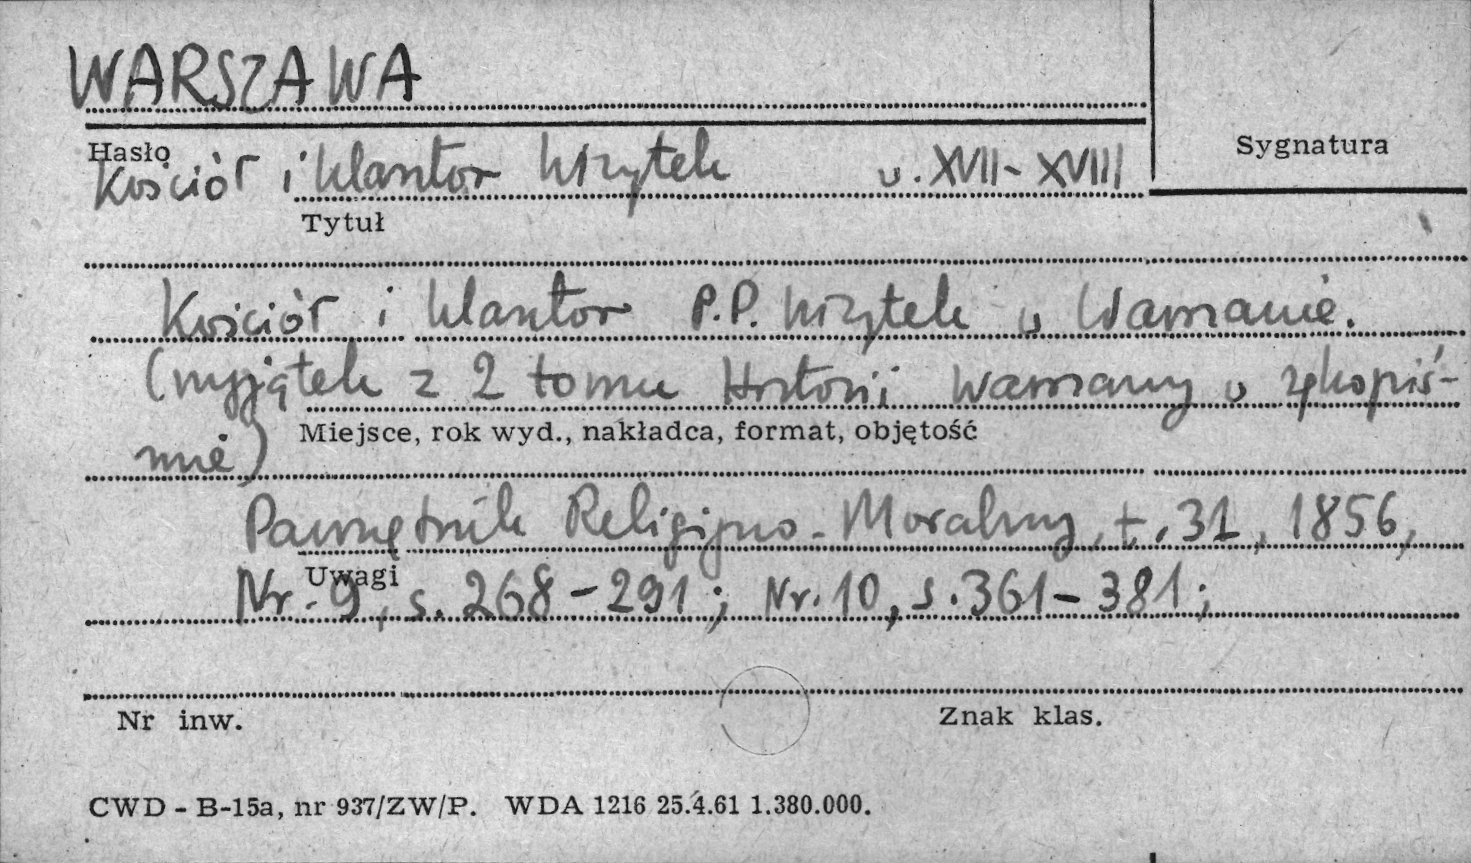 WARSZAWA
Hasło
Sygnatura
Kościół i klasztor Wizytek w. XVII - XVIII
Tytuł
Kościół i klasztor P.P. Wizytek w Warszawie.
(wyjątek z 2 tomu Historii Warszawy w rękopiś-
mie)
Miejsce, rok wyd., nakładca, format, objętość
Pamiętnik Religijno-Moralny, t. 31, 1856,
Uwagi
Nr. 9, s. 268-291; Nr. 10, s. 361-381;
Nr inw.
Znak klas.
CWD - B-15a, nr 937/ZW/P. WDA 1216 25.4.61 1.380.000.